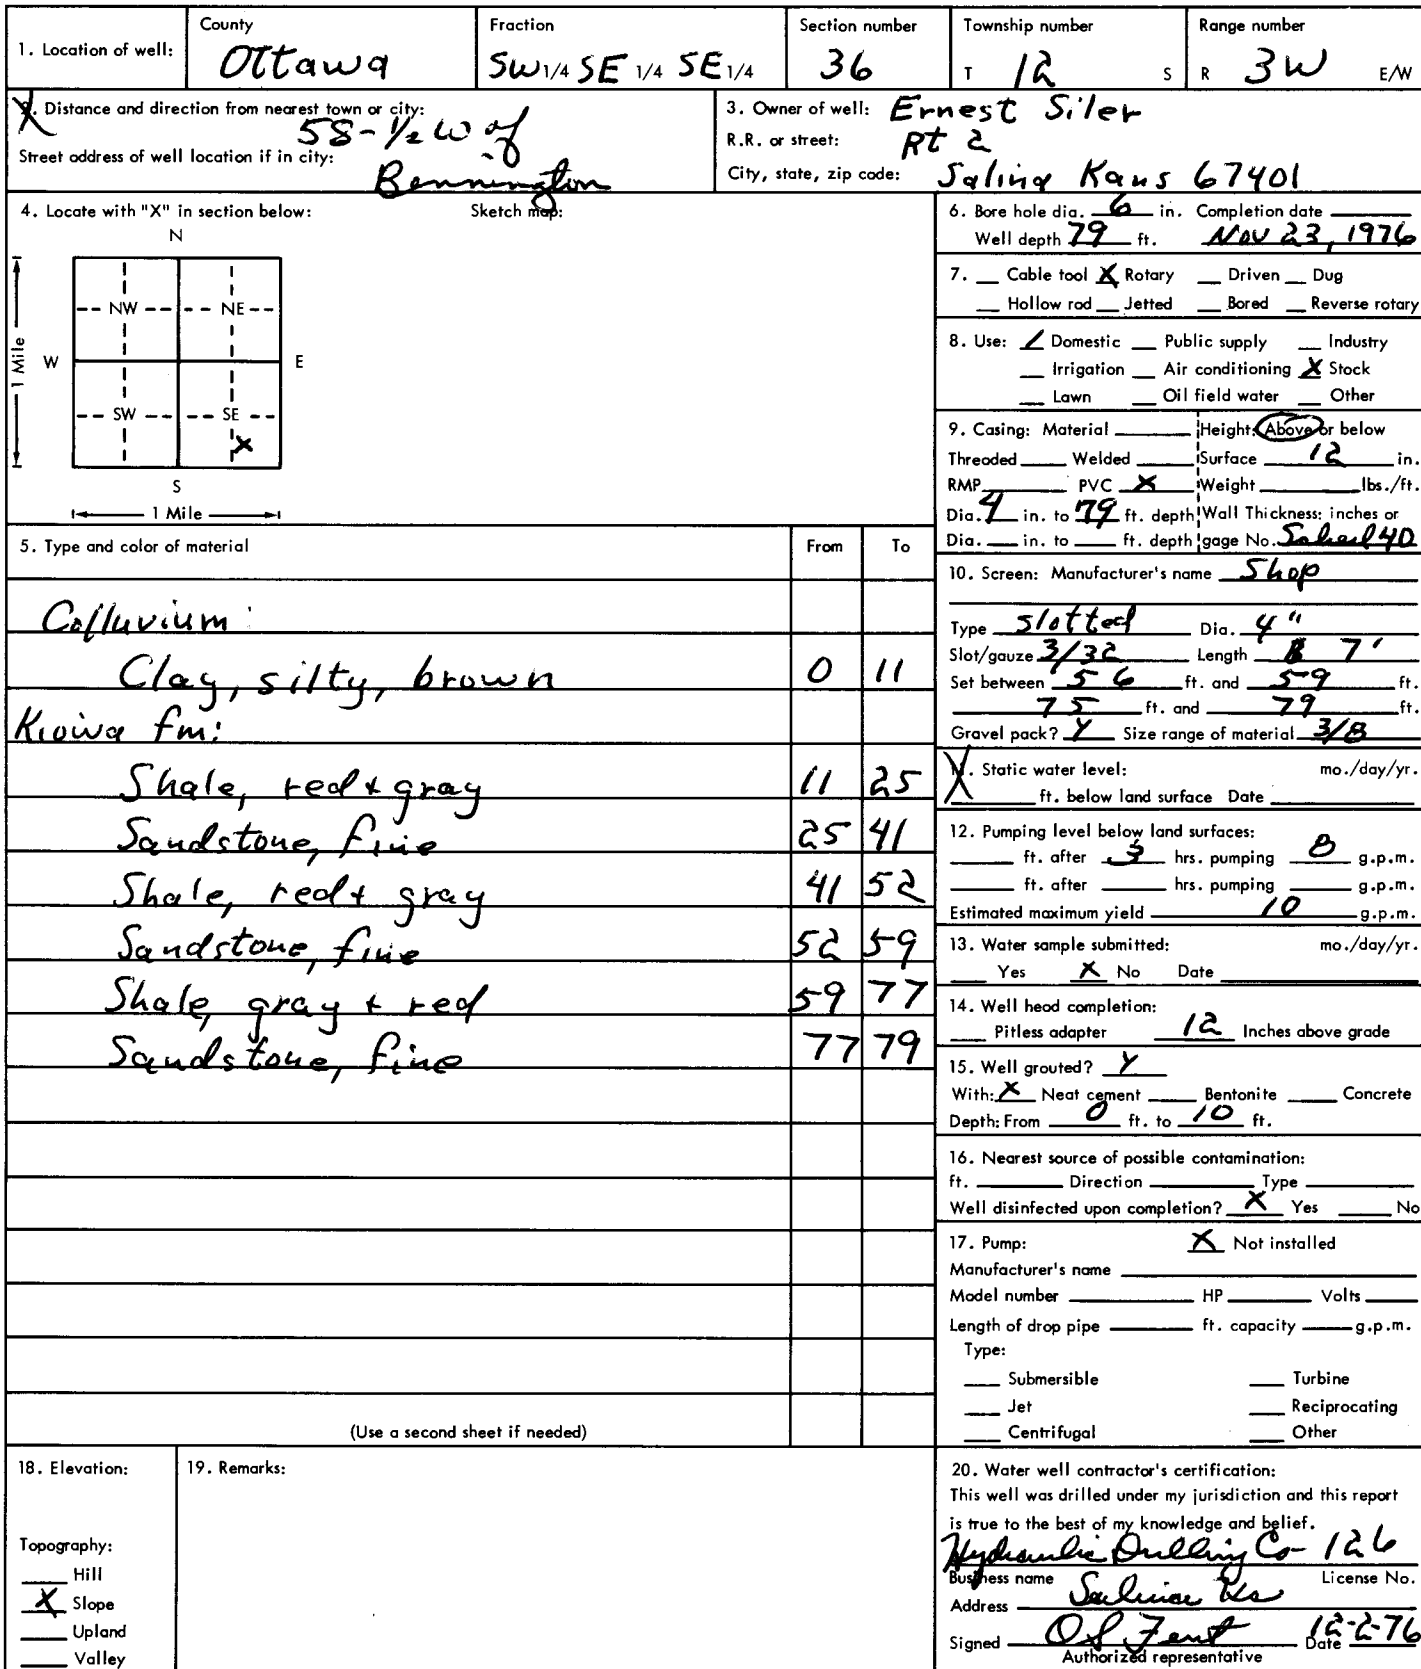 1. Location of well: County Ottawa Fraction SW 1/4 SE 1/4 SE 1/4 Section number 36 Township number T 12 S Range number R 3W E/W
2. Distance and direction from nearest town or city: 5S-1/2 W of
Street address of well location if in city: Bennington
3. Owner of well: Ernest Siler
R.R. or street: Rt 2
City, state, zip code: Salina Kans 67401
4. Locate with "X" in section below: Sketch map:
N
NW NE
W E
1 Mile
SW SE
X
S
1 Mile
5. Type and color of material From To
Colluvium:
Clay, silty, brown 0 11
Kiowa fm:
Shale, red + gray 11 25
Sandstone, fine 25 41
Shale, red + gray 41 52
Sandstone, fine 52 59
Shale, gray + red 59 77
Sandstone, fine 77 79
(Use a second sheet if needed)
6. Bore hole dia. 6 in. Completion date
Well depth 79 ft. Nov 23, 1976
7. __ Cable tool X Rotary __ Driven __ Dug
__ Hollow rod __ Jetted __ Bored __ Reverse rotary
8. Use: / Domestic __ Public supply __ Industry
__ Irrigation __ Air conditioning X Stock
__ Lawn __ Oil field water __ Other
9. Casing: Material ____ Height: Above or below
Threaded ____ Welded ____ Surface 12 in.
RMP ____ PVC X Weight ____ lbs./ft.
Dia. 4 in. to 79 ft. depth Wall Thickness: inches or
Dia. __ in. to __ ft. depth gage No. Sched 40
10. Screen: Manufacturer's name Shop
Type slotted Dia. 4"
Slot/gauze 3/32 Length 7'
Set between 56 ft. and 59 ft.
75 ft. and 79 ft.
Gravel pack? Y Size range of material 3/8
11. Static water level: mo./day/yr.
____ ft. below land surface Date ____
12. Pumping level below land surfaces:
____ ft. after 3 hrs. pumping 8 g.p.m.
____ ft. after ____ hrs. pumping ____ g.p.m.
Estimated maximum yield 10 g.p.m.
13. Water sample submitted: mo./day/yr.
__ Yes X No Date ____
14. Well head completion:
__ Pitless adapter 12 Inches above grade
15. Well grouted? Y
With: X Neat cement ____ Bentonite ____ Concrete
Depth: From 0 ft. to 10 ft.
16. Nearest source of possible contamination:
ft. ____ Direction ____ Type ____
Well disinfected upon completion? X Yes ____ No
17. Pump: X Not installed
Manufacturer's name ____
Model number ____ HP ____ Volts ____
Length of drop pipe ____ ft. capacity ____ g.p.m.
Type:
__ Submersible __ Turbine
__ Jet __ Reciprocating
__ Centrifugal __ Other
18. Elevation:
Topography:
__ Hill
X Slope
__ Upland
__ Valley
19. Remarks:
20. Water well contractor's certification:
This well was drilled under my jurisdiction and this report
is true to the best of my knowledge and belief.
Hydraulic Drilling Co 126
Business name License No.
Address Salina Ks
Signed O S Fent Date 12-2-76
Authorized representative